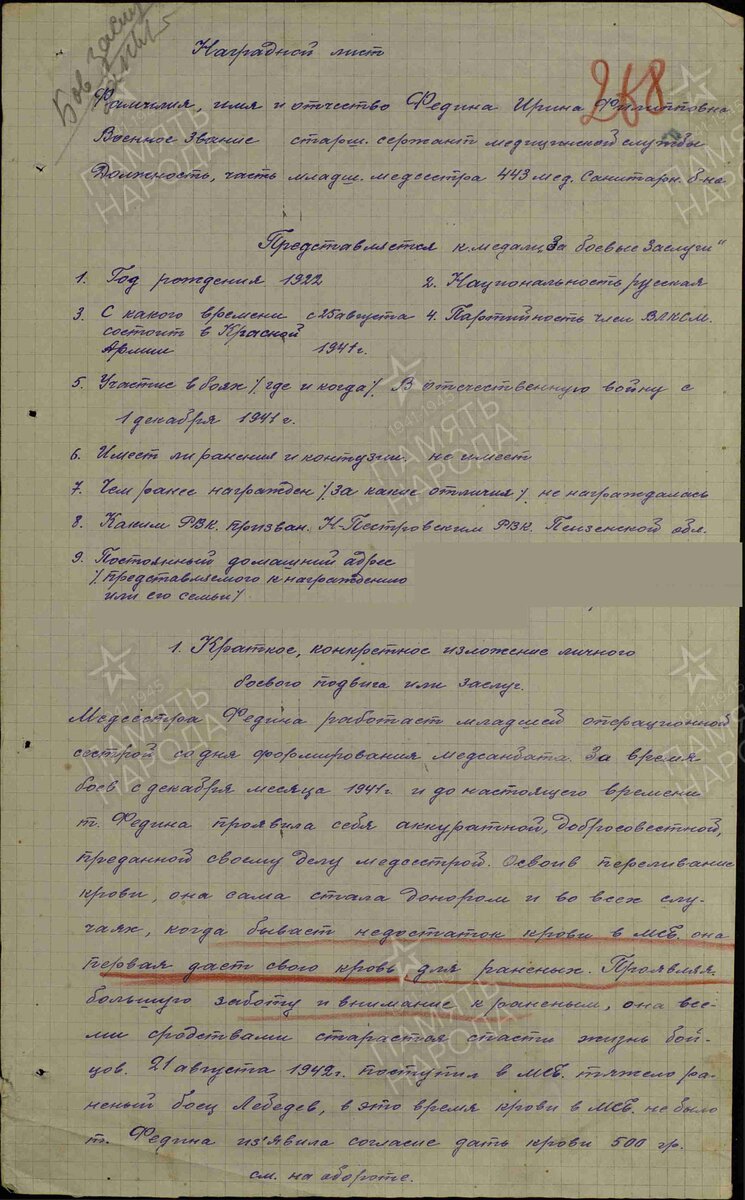 Бов заслуги
Наградной лист
268
Фамилия, имя и отчество Федина Ирина Филипповна
Военное звание старш. сержант медицинской службы
Должность, часть младш. медсестра 443 мед. санитарн. б-на
Представляется к медали „За боевые заслуги"
1. Год рождения 1922 2. Национальность русская
3. С какого времени с 25 августа 4. Партийность член ВЛКСМ.
состоит в Красной
Армии 1941 г.
5. Участие в боях /где и когда/. В отечественную войну с
1 декабря 1941 г.
6. Имеет ли ранения и контузии. не имеет
7. Чем ранее награжден /за какие отличия/. не награждалась
8. Каким РВК. призван. Н-Пестровским РВК. Пензенской обл.
9. Постоянный домашний адрес
/представляемого к награждению
или его семьи/
1. Краткое, конкретное изложение личного
боевого подвига или заслуг.
Медсестра Федина работает младшей операционной
сестрой со дня формирования медсанбата. За время
боев с декабря месяца 1941 г. и до настоящего времени
т. Федина проявила себя аккуратной, добросовестной,
преданной своему делу медсестрой. Освоив переливание
крови, она сама стала донором и во всех слу-
чаях, когда бывает недостаток крови в МСБ. она
первая дает свою кровь для раненых. Проявляя
большую заботу и внимание к раненым, она все-
ми сродствами старается спасти жизнь бой-
цов. 21 августа 1942 г. поступил в МСБ. тяжело ра-
неный боец Лебедев, в это время крови в МСБ. не было
т. Федина из'явила согласие дать крови 500 гр.
см. на обороте.
ПАМЯТЬ
НАРОДА
1941-1945
ПАМЯТЬ
НАРОДА
1941-1945
ПАМЯТЬ
НАРОДА